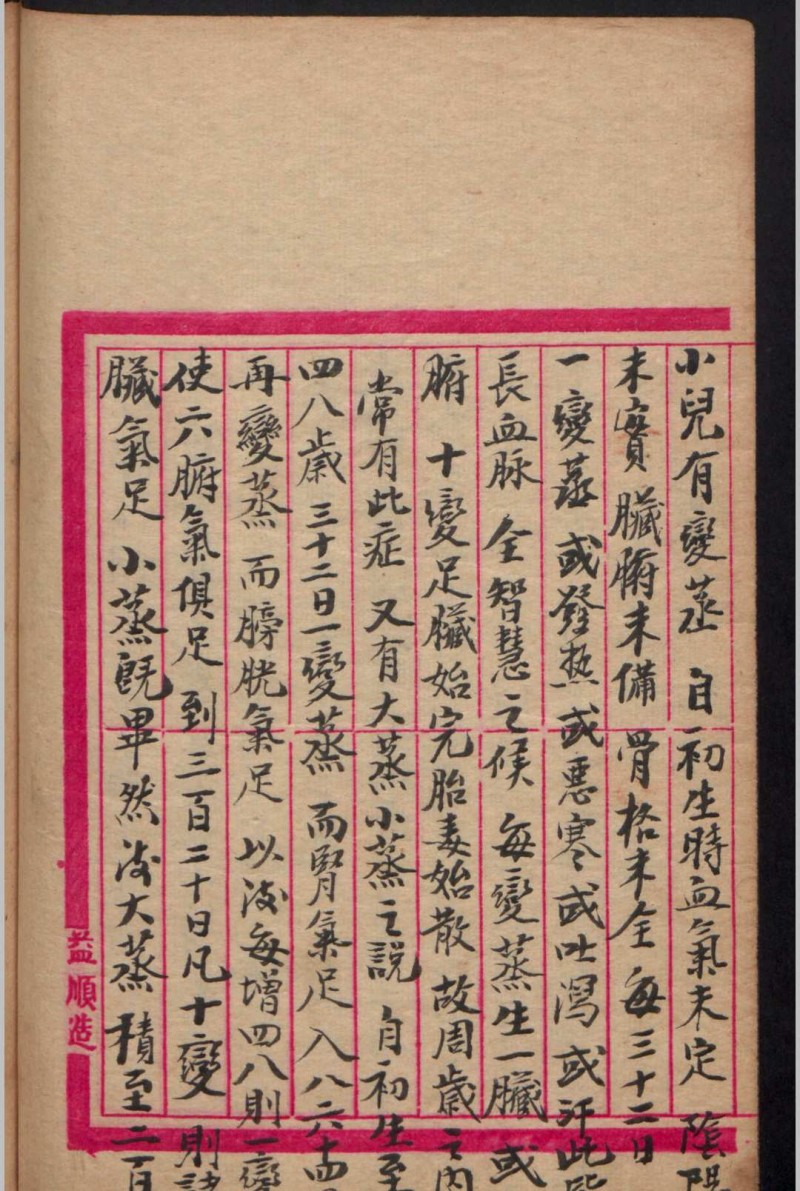 小兒有變蒸 自初生時血氣未定 陰陽
未實 臟腑未備 骨格未全 每三十二日
一變蒸 或發热或惡寒或吐瀉或汗此皆
長血脉 全智慧之候 每變蒸生一臟或
腑 十變足臟始完胎毒始散 故周歲之內
常有此症 又有大蒸小蒸之説 自初生至
四八歲 三十二日一變蒸 而腎氣足 入八六十四
再變蒸 而膀胱氣足 以後每增四八則一變
使六腑氣俱足 到三百二十日凡十變 則
臟氣足 小蒸既畢 然後大蒸 積至二百
益順造